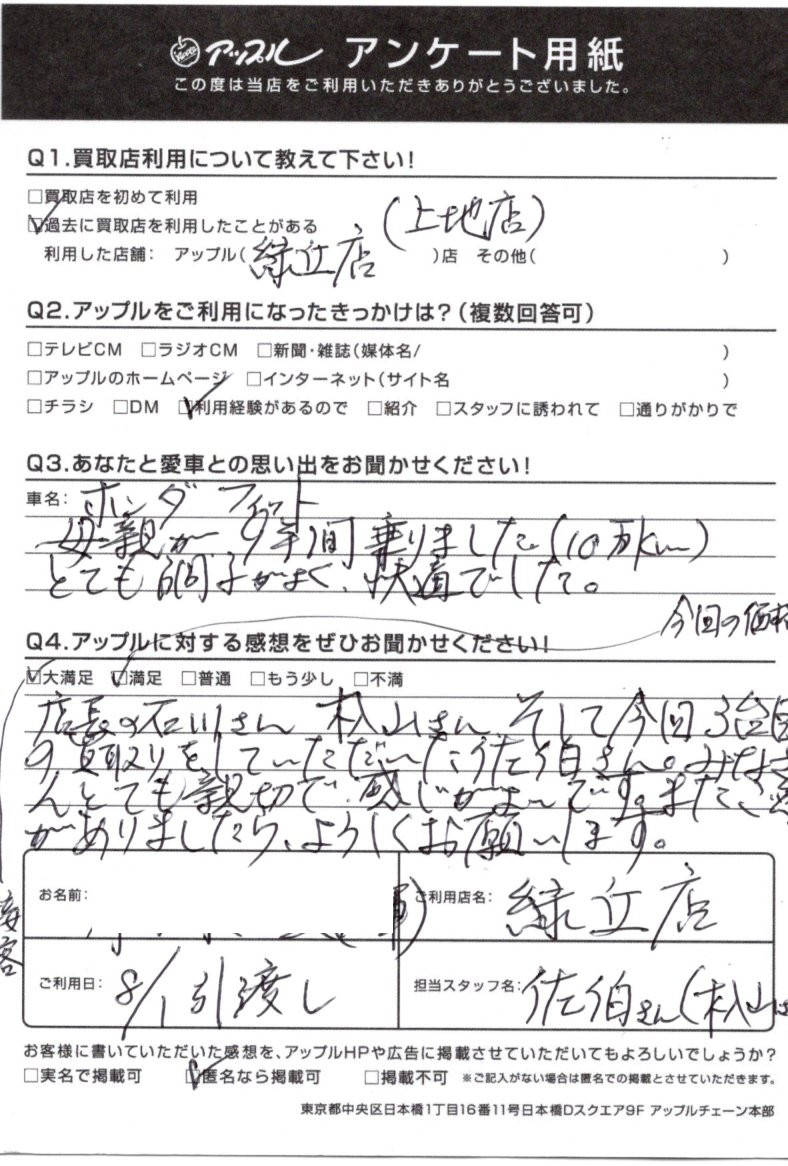 アップル アンケート用紙
この度は当店をご利用いただきありがとうございました。
Q1.買取店利用について教えて下さい!
□買取店を初めて利用
☑過去に買取店を利用したことがある (上地店)
利用した店舗: アップル( 緑丘店 )店 その他( )
Q2.アップルをご利用になったきっかけは?(複数回答可)
□テレビCM □ラジオCM □新聞・雑誌(媒体名/ )
□アップルのホームページ □インターネット(サイト名 )
□チラシ □DM ☑利用経験があるので □紹介 □スタッフに誘われて □通りがかりで
Q3.あなたと愛車との思い出をお聞かせください!
車名: ホンダ フィット
母親が9年間乗りました(10万km)
とても調子がよく、快適でした。
今回の価格
Q4.アップルに対する感想をぜひお聞かせください!
☑大満足 ☑満足 □普通 □もう少し □不満
店長の石川さん 杉山さん そして今回3台目
の買取りをしていただいた佐伯さん。みなさ
んとても親切で感じがよいです。またご
がありましたら、よろしくお願いします。
接客
お名前:
ご利用店名: 緑丘店
ご利用日: 8/1引渡し
担当スタッフ名: 佐伯さん(杉山
お客様に書いていただいた感想を、アップルHPや広告に掲載させていただいてもよろしいでしょうか?
□実名で掲載可 ☑匿名なら掲載可 □掲載不可 ※ご記入がない場合は匿名での掲載とさせていただきます。
東京都中央区日本橋1丁目16番11号日本橋Dスクエア9F アップルチェーン本部